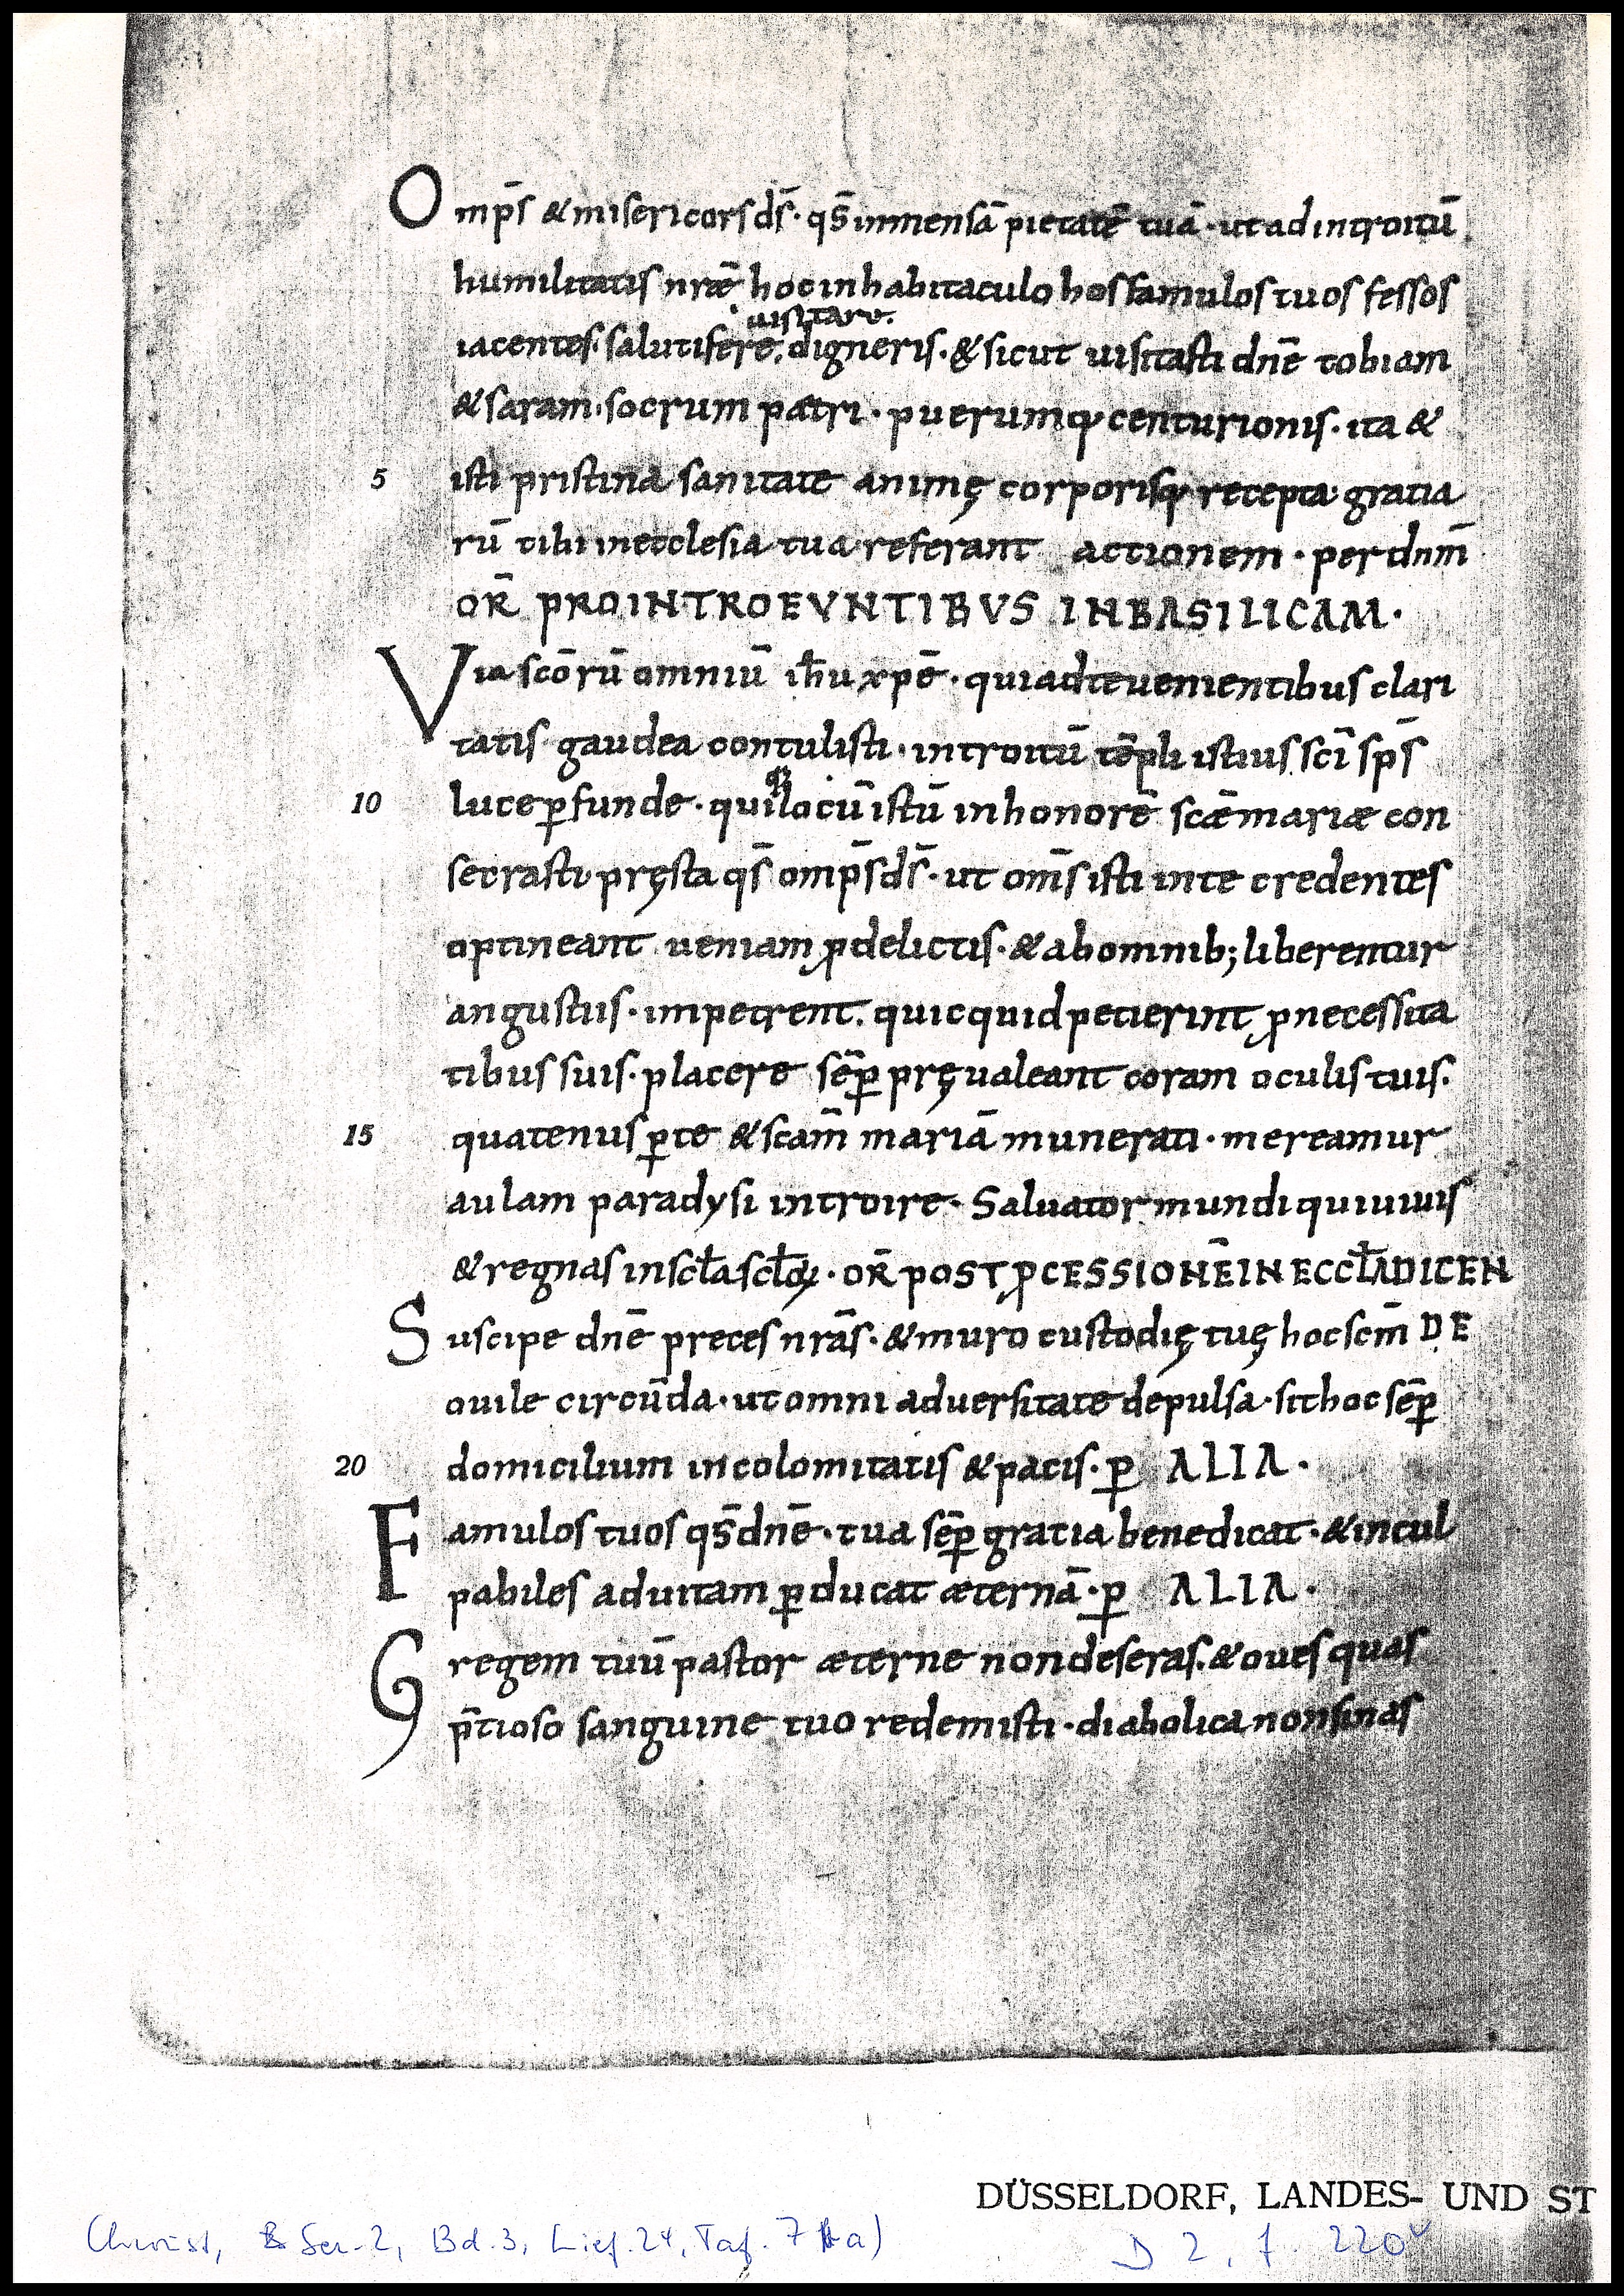 Omp̄s & misericors ds̄· qs̄ immensā pietatē tuā· ut ad introitū
humilitatis nrǣ hoc in habitaculo hos famulos tuos fessos
uisitare.
iacentes· salutifere, digneris· & sicut uisitasti dnē tobiam
& saram· socrum petri· puerumq; centurionis· ita &
5 isti pristina sanitate animę corporisq; recepta gratia
rū tibi in ecclesia tua referant actionem· per dnm̄
OR̄ PRO INTROEVNTIBVS IN BASILICAM·
Via scōrū omniū ih̄u xpē· qui ad te uenientibus clari
tatis gaudea contulisti· introitū tēpli istius sc̄i sp̄s
q;
10 luce ꝑfunde· qui locū istū in honorē scǣ mariæ con
secrasti pręsta qs̄ omp̄s ds̄· ut om̄s isti in te credentes
optineant ueniam ꝓ delictis· & ab omnib; liberentur
angustiis· impetrent. quicquid petierint ꝓ necessita
tibus suis· placere sēꝑ pręualeant coram oculis tuis.
15 quatenus ꝑ te & scam̄ mariā munerati· mereamur
aulam paradysi introire· Saluator mundi qui uiuis
& regnas in scła scłoꝝ· OR̄ POST ꝓCESSIONĒ IN ECCŁA DICEN
Suscipe dnē preces nrās· & muro custodię tuę hoc scm̄ DE
ouile circūda· ut omni aduersitate depulsa· sit hoc sēꝑ
20 domicilium incolomitatis & pacis· ꝑ ALIA·
Famulos tuos qs̄ dnē· tua sēꝑ gratia benedicat· & incul
pabiles ad uitam ꝑducat æternā· ꝑ ALIA·
Gregem tuū pastor æterne non deseras. & oues quas
p̄tioso sanguine tuo redemisti· diabolica non sinas
DÜSSELDORF, LANDES- UND ST
(Chroust, Ser. 2, Bd. 3, Lief. 24, Taf. 7 a) D 2, f. 220v